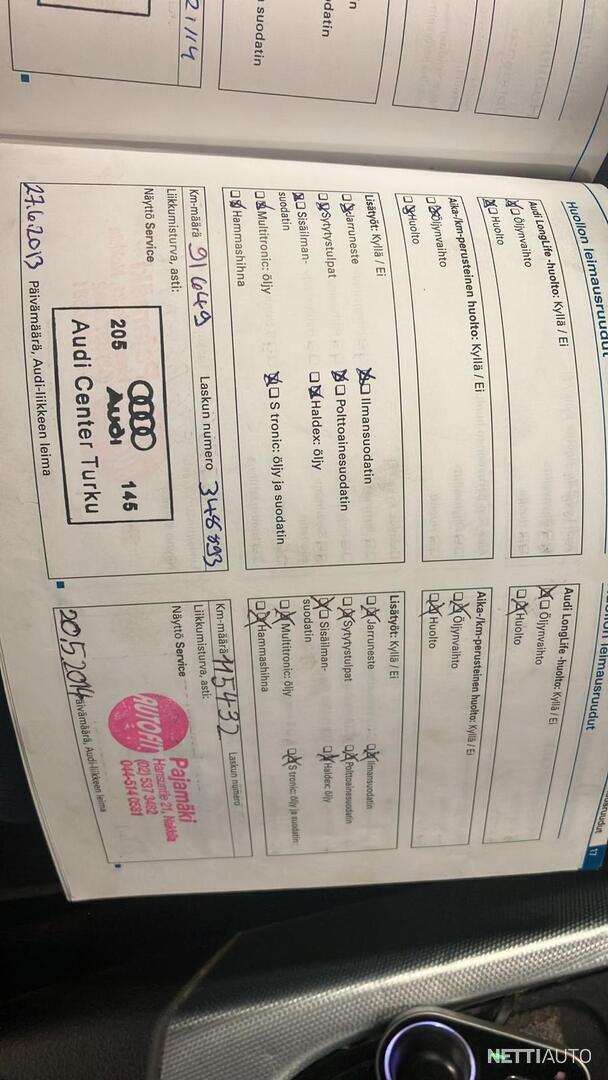 21114
n suodatin
odatin
in
Huollon leimausruudut
Audi LongLife -huolto: Kyllä / Ei
Öljynvaihto
Huolto
Aika-/km-perusteinen huolto: Kyllä / Ei
Öljynvaihto
Huolto
Lisätyöt: Kyllä / Ei
Jarruneste
Ilmansuodatin
Sytytystulpat
Polttoainesuodatin
Sisäilman-
suodatin
Haldex: öljy
Multitronic: öljy
S tronic: öljy ja suodatin
Hammashihna
Km-määrä 91649
Laskun numero 348893
Liikkumisturva, asti:
Näyttö Service
205 Audi 145
Audi Center Turku
27.6.2013 Päivämäärä, Audi-liikkeen leima
leimausruudut
ausruudut 17
Audi LongLife -huolto: Kyllä / Ei
Öljynvaihto
Huolto
Aika-/km-perusteinen huolto: Kyllä / Ei
Öljynvaihto
Huolto
Lisätyöt: Kyllä / Ei
Jarruneste
Ilmansuodatin
Sytytystulpat
Polttoainesuodatin
Sisäilman-
suodatin
Haldex: öljy
Multitronic: öljy
S tronic: öljy ja suodatin
Hammashihna
Km-määrä 115432
Laskun numero
Liikkumisturva, asti:
Näyttö Service
Pajamäki
Hansuntie 21, Nakkila
(02) 537 3482
044-514 0581
20.5.2014 Päivämäärä, Audi-liikkeen leima
NETTIAUTO